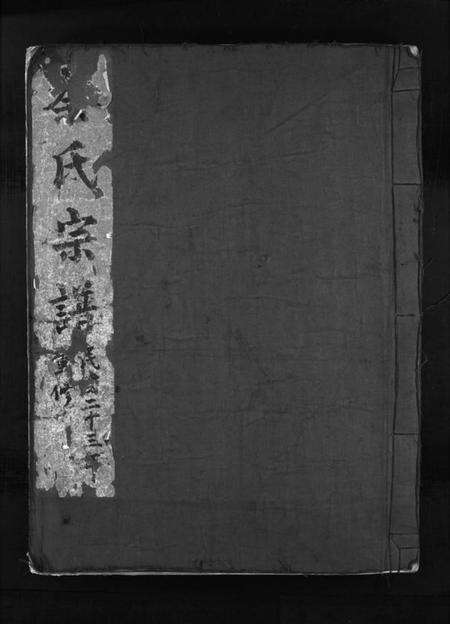 氏宗譜
民國二十三年
重修